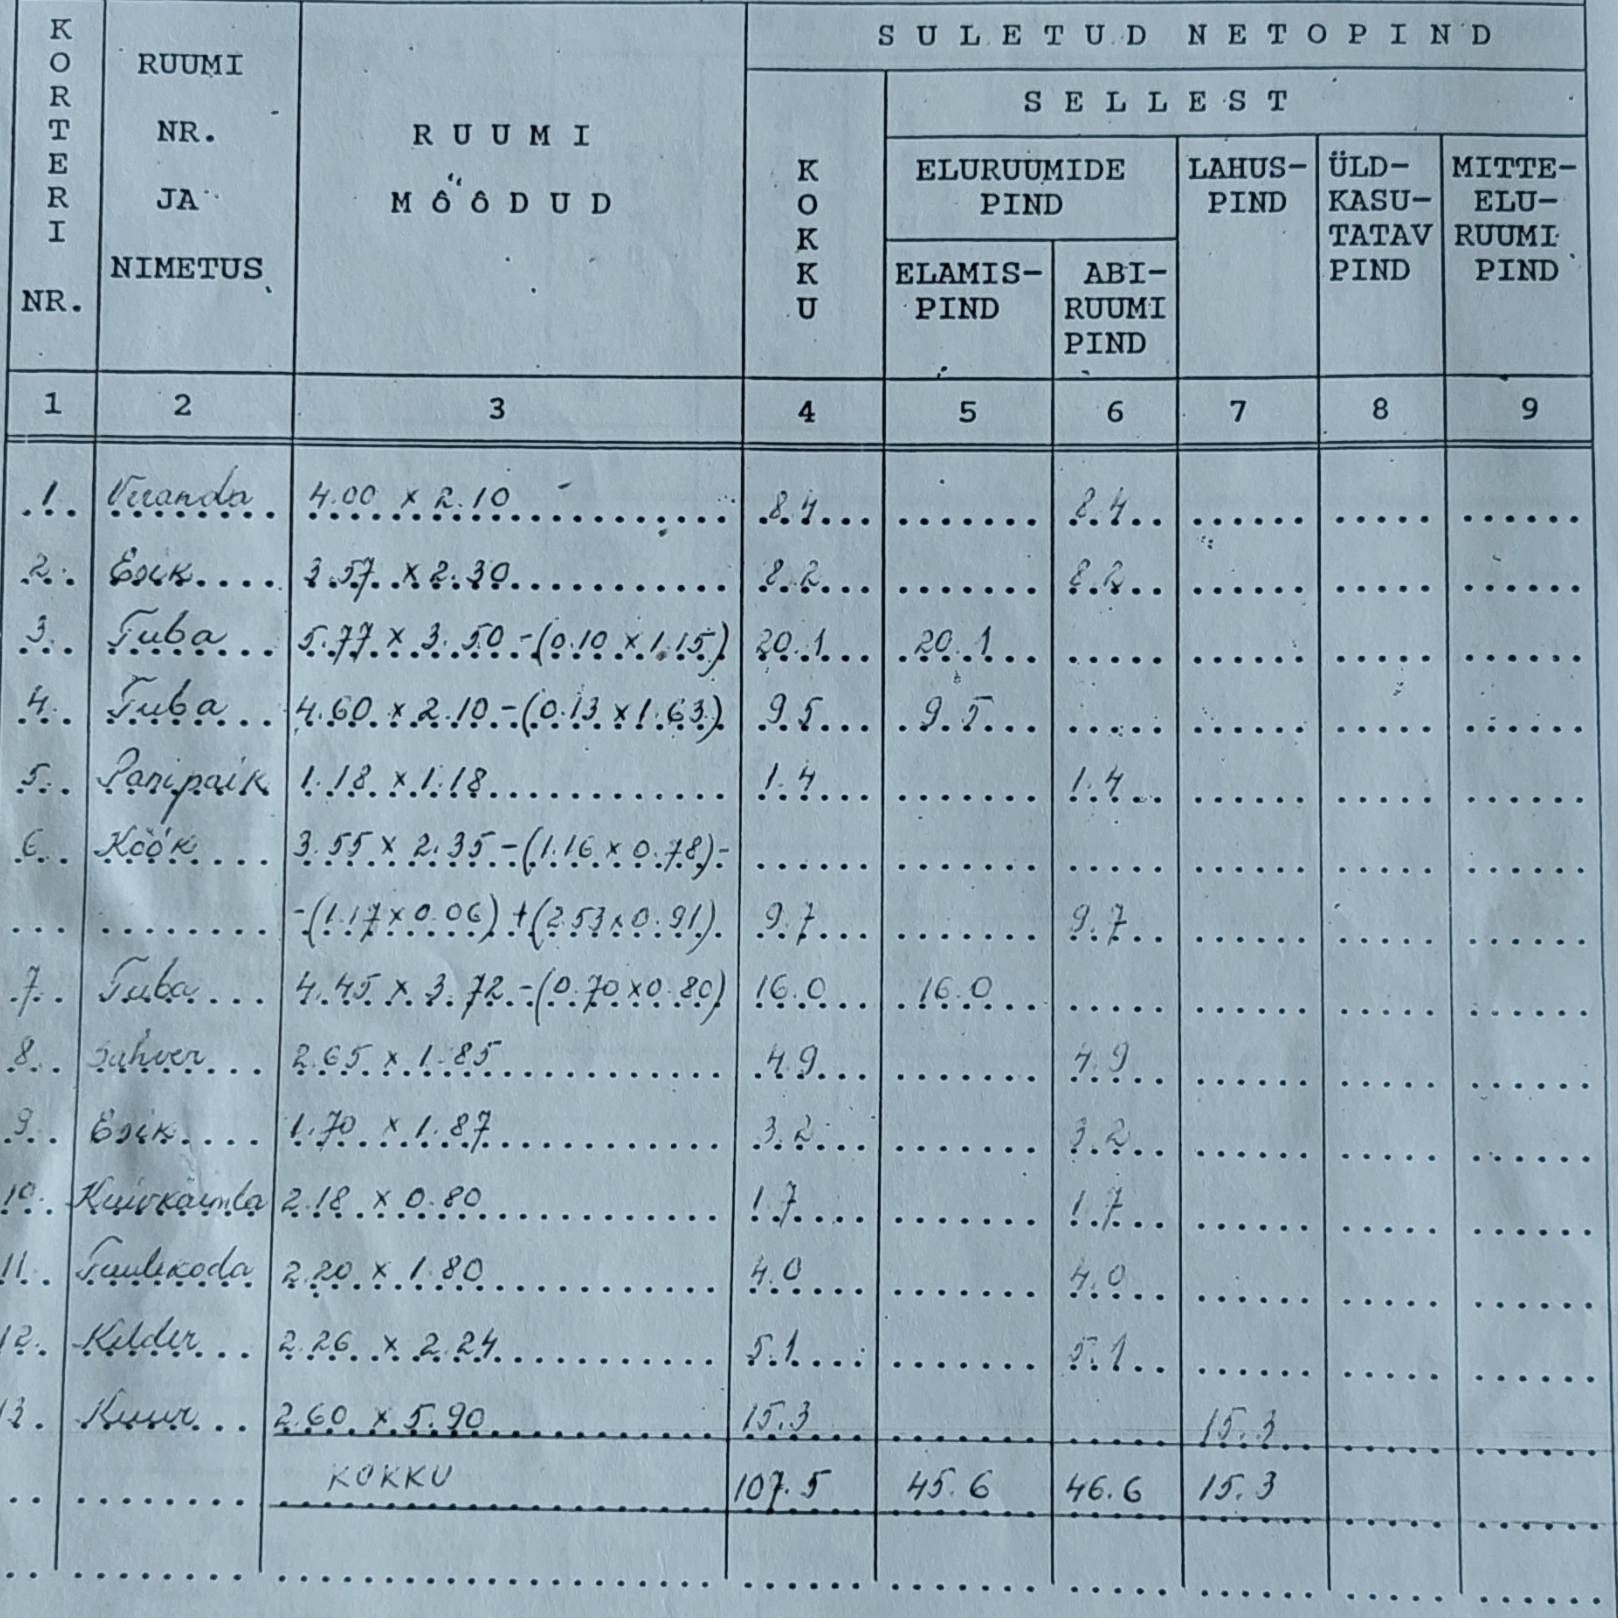 KORTERI NR.
RUUMI NR. JA NIMETUS
RUUMI MÕÕDUD
SULETUD NETOPIND
KOKKU
SELLEST
ELURUUMIDE PIND
ELAMIS-PIND
ABI-RUUMI PIND
LAHUS-PIND
ÜLD-KASU-TATAV PIND
MITTE-ELU-RUUMI PIND
1 2 3 4 5 6 7 8 9
1. Veranda 4.00 x 2.10 8.4 8.4
2. Esik 3.57 x 2.30 8.2 8.2
3. Tuba 5.77 x 3.50 -(0.10 x 1.15) 20.1 20.1
4. Tuba 4.60 x 2.10 -(0.13 x 1.63) 9.5 9.5
5. Panipaik 1.18 x 1.18 1.4 1.4
6. Köök 3.55 x 2.35 -(1.16 x 0.78)-
-(1.17 x 0.06) +(2.53 x 0.91) 9.7 9.7
7. Tuba 4.45 x 3.72 -(0.70 x 0.80) 16.0 16.0
8. Sahver 2.65 x 1.85 4.9 4.9
9. Esik 1.70 x 1.87 3.2 3.2
10. Kuivkäimla 2.18 x 0.80 1.7 1.7
11. Tuulekoda 2.20 x 1.80 4.0 4.0
12. Kelder 2.26 x 2.24 5.1 5.1
13. Kuur 2.60 x 5.90 15.3 15.3
KOKKU 107.5 45.6 46.6 15.3